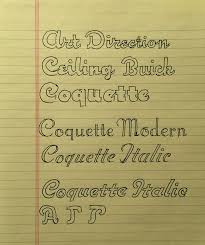 Art Direction
Ceiling Buick
Coquette
Coquette Modern
Coquette Italic
Coquette Italic